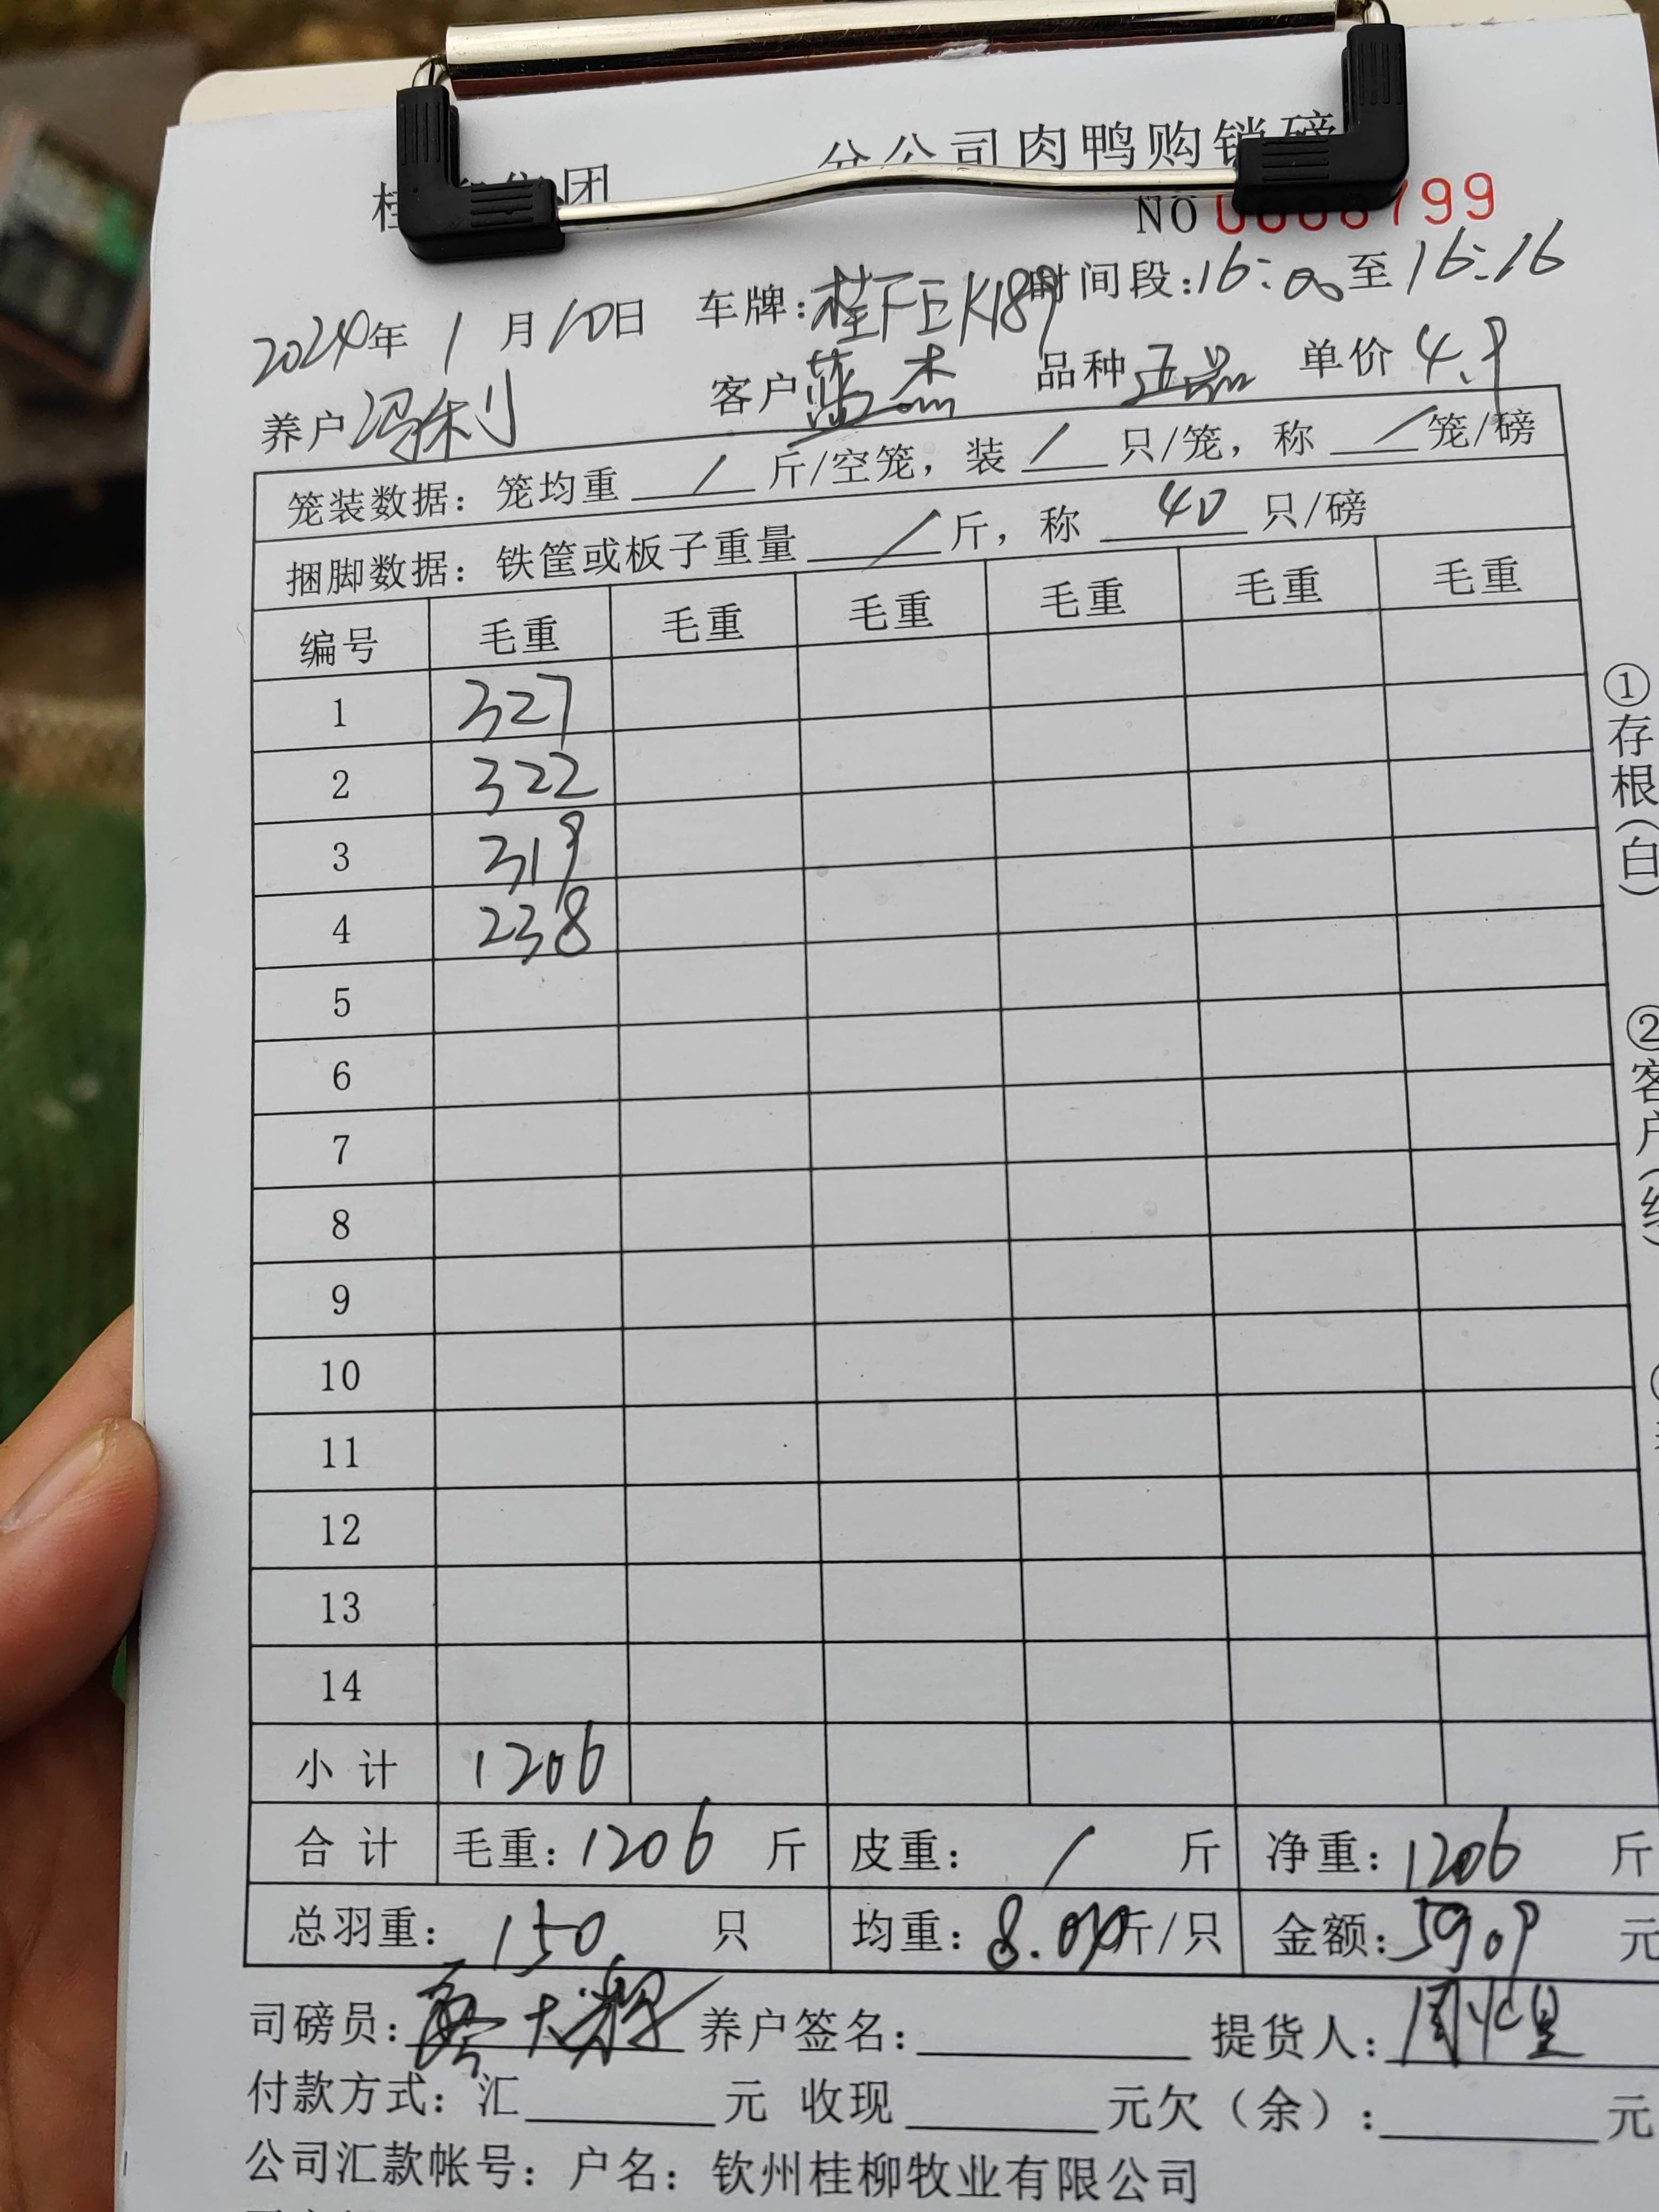 分公司肉鸭购销磅
桂 集团
NO 0008799
2024年 1 月 10日 车牌: 桂FEK189 时间段:16:00至16:16
养户 冯利 客户 蓝杰 品种 五品 单价 4.9
笼装数据: 笼均重 / 斤/空笼, 装 / 只/笼, 称 / 笼/磅
捆脚数据: 铁筐或板子重量 / 斤, 称 40 只/磅
编号 毛重 毛重 毛重 毛重 毛重 毛重
1 327
2 322
3 319
4 238
5
6
7
8
9
10
11
12
13
14
小 计 1206
合 计 毛重: 1206 斤 皮重: / 斤 净重: 1206 斤
总羽重: 150 只 均重: 8.04 斤/只 金额: 5909 元
司磅员: 养户签名: 提货人:
付款方式: 汇 元 收现 元欠（余）: 元
公司汇款帐号: 户名: 钦州桂柳牧业有限公司
①存根(白)
②客户(红)